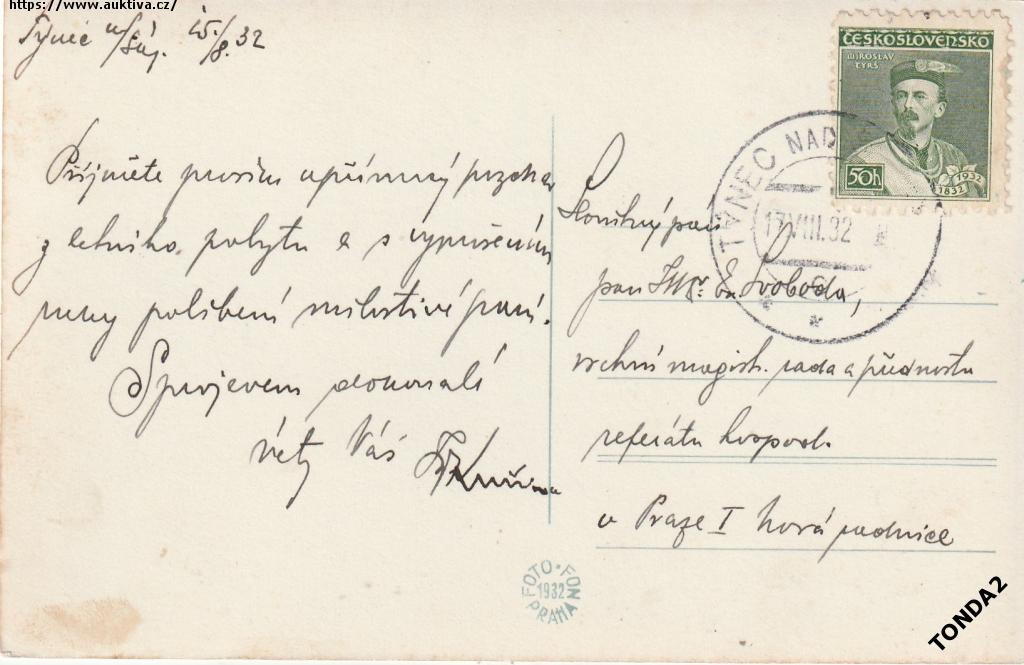 https://www.auktiva.cz/
Týnec n/Sáz. 15./8. 32
Přijměte prosím upřímný pozdrav
z letního pobytu a s vyprošením
ruky políbení milostivé paní.
S projevem dokonalé
úcty Váš
ČESKOSLOVENSKO
MIROSLAV
TYRŠ
50h
1932
1832
TÝNEC NAD
17.VIII.32
Slovutný pan
pan Svoboda,
vrchní magist. rada a přednosta
referátu hospod.
v Praze I Nová radnice
FOTO-FON
1932
PRAHA
TONDA2